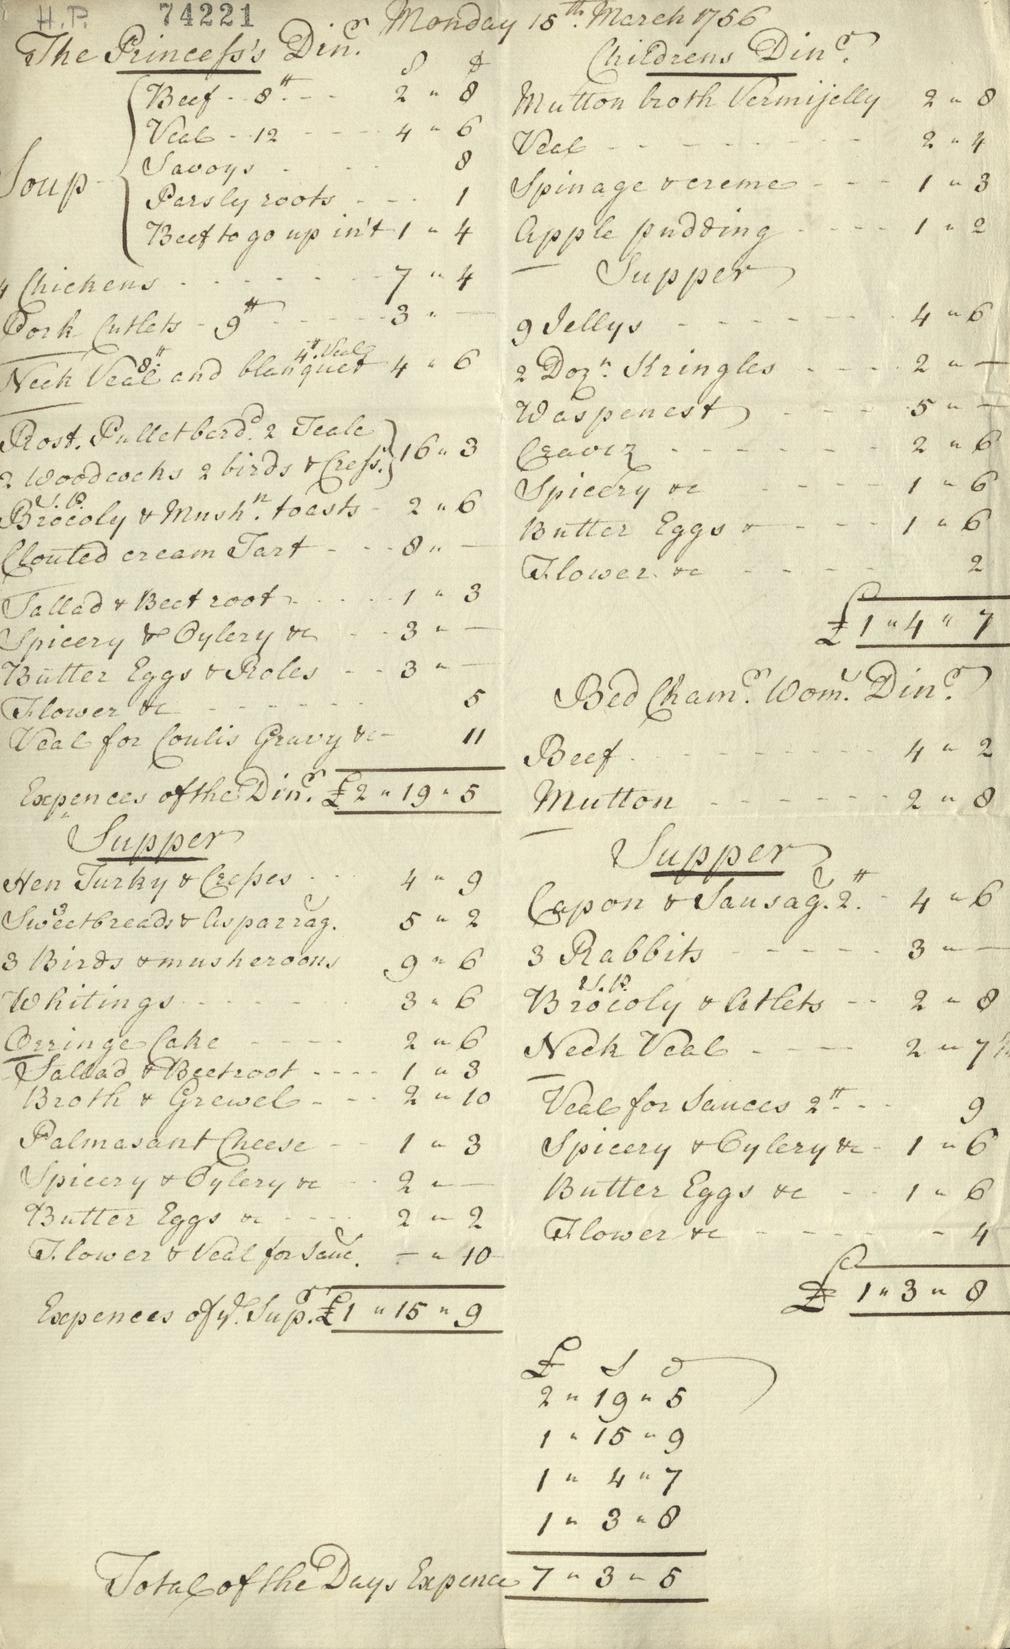 H.P. 74221
Monday 15th. March 1756
The Princess's Dinr.
S d
Soup
Beef - - 8tt. - - 2 " 8
Veal - - 12 - - - - 4 " 6
Savoys - - 8
Parsly roots - - - 1
Beef to go up in't 1 " 4
4 Chickens - - - - - 7 " 4
Pork Cutlets - 9tt - - - - 3 " —
Neck Veal 8tt and blanquet 4tt Veal 4 " 6
Rost. Pullet bard. 2 Teale
2 Woodcocks 2 birds & Cress. 16 " 3
Brocoly & Mushn. toasts - 2 " 6
Clouted cream Tart - - - 8 " —
Sallad & Beet root - - - - 1 " 3
Spicery & Oylery &c - - 3 " —
Butter Eggs & Roles - - 3 " —
Flower &c - - - - - - 5
Veal for Coulis Gravy &c - 11
Expences of the Dinr. £2 " 19 " 5
Supper
Hen Turky & Cresses - - 4 " 9
Sweetbreads & Asparrag. 5 " 2
3 Birds & musheroons 9 " 6
Whitings - - - - - 3 " 6
Orringe Cake - - - - 2 " 6
Sallad & Beetroot - - - - 1 " 3
Broth & Grewel - - - 2 " 10
Palmasant Cheese - - 1 " 3
Spicery & Oylery &c - - 2 " —
Butter Eggs &c - - - - 2 " 2
Flower & Veal for Sauc. — " 10
Expences of ye. Sup. £1 " 15 " 9
Childrens Dinr.
Mutton broth Vermijelly 2 " 8
Veal - - - - - - - 2 " 4
Spinage & creme - - - 1 " 3
Apple pudding - - - - 1 " 2
Supper
9 Jellys - - - - - - 4 " 6
2 Dozn. Kringles - - - - 2 " —
Waspenest - - - - 5 " —
- - - - - - 2 " 6
Spicery &c - - - - 1 " 6
Butter Eggs & - - - - 1 " 6
Flower &c - - - - - 2
£1 " 4 " 7
Bed Chamr. Wom. Dinr.
Beef - - - - - - 4 " 2
Mutton - - - - - - 2 " 8
Supper
Capon & Sausag. 2tt. - 4 " 6
3 Rabbits - - - - - 3 " —
Brocoly & Atlets - - 2 " 8
Neck Veal - - - - 2 " 7½
Veal for Sauces 2tt. - - 9
Spicery & Oylery &c - 1 " 6
Butter Eggs &c - - 1 " 6
Flower &c - - - - - - 4
£ 1 " 3 " 8
£ S d
2 " 19 " 5
1 " 15 " 9
1 " 4 " 7
1 " 3 " 8
Total of the Days Expence 7 " 3 " 5